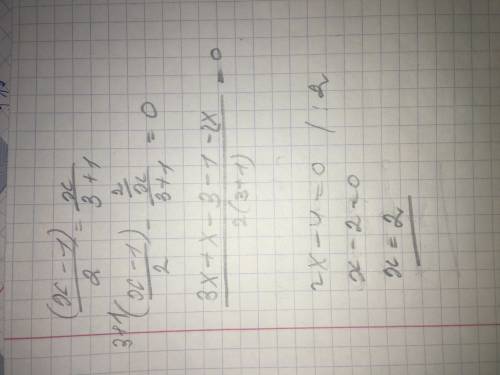 (x-1)/2 = x/3+1
3+1(x-1)/2 - 2 x/3+1 = 0
3x+x-3-1-2x/2(3+1) = 0
2x-4=0 /:2
x-2=0
x=2